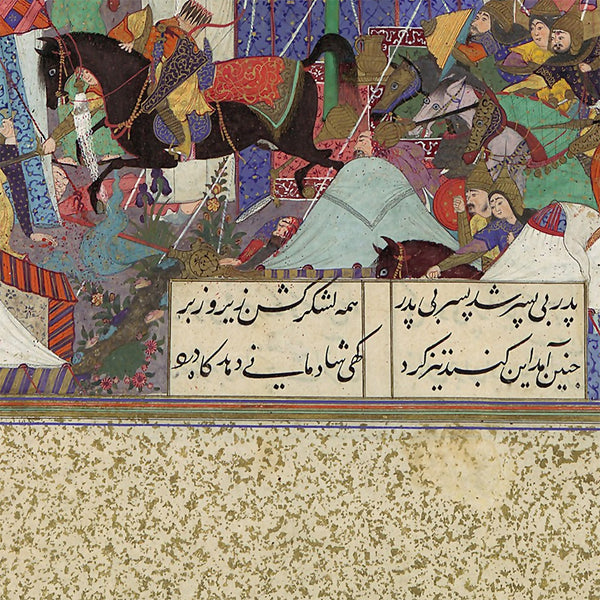 پدر بی پسر شد پسر بی پدر همه لشکر کشن زیر و زبر
چنین آمد این کنبد تیز کرد کهی شادمانی دهد کاه درد